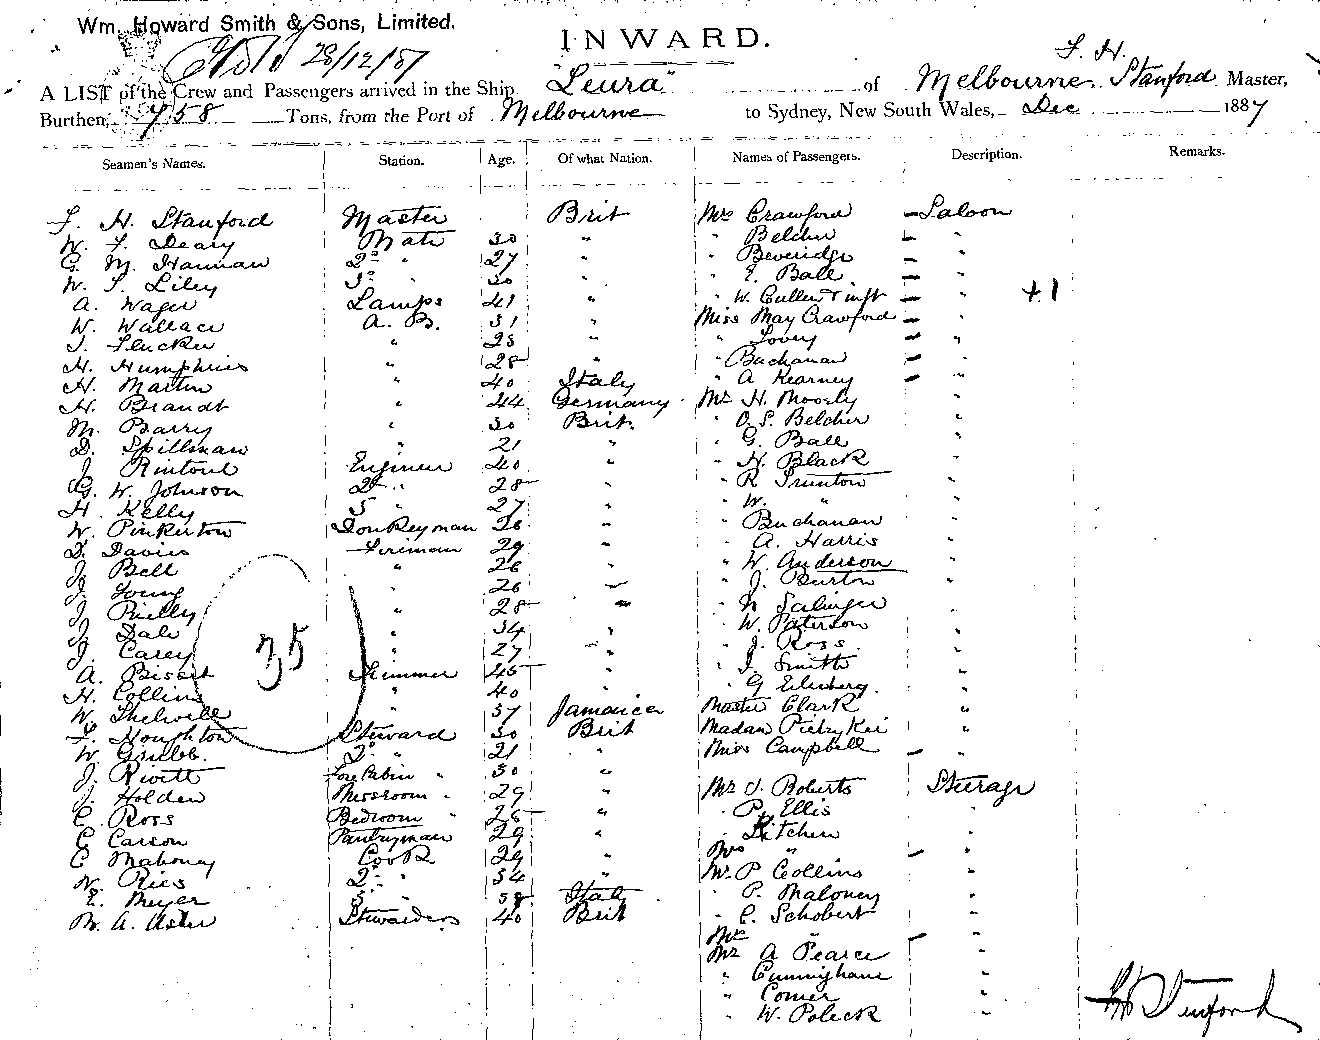 Wm. Howard Smith & Sons, Limited.
28/12/87
INWARD.
A LIST of the Crew and Passengers arrived in the Ship "Leura" of Melbourne F. H. Stanford Master,
Burthen, 758 Tons, from the Port of Melbourne to Sydney, New South Wales, Dec 1887
Seamen's Names. Station. Age. Of what Nation. Names of Passengers. Description. Remarks.
F. H. Stanford Master Brit Mrs Crawford - Saloon
W. F. Deary Mate 30 " " Belcher - "
G. M. Hannan 2d " 27 " " Beveridge - "
W. S. Liley 3d " 30 " " E. Ball - "
A. Wager Lamps 41 " " W. Cullen & inft - " +1
W. Wallace A. B. 31 " Miss May Crawford - "
" 23 " " - "
H. Humphries " 28 " " Buchanan - "
H. Martin " 40 Italy " A Kearney - "
H. Brandt " 44 Germany Mr H. Moosly "
M. Barry " 30 Brit " O. S. Belcher "
D. Spillman " 21 " " G. Ball "
J. Rintoul Engineer 40 " " H. Black "
G. W. Johnson 2d " 28 " " R Trunton "
H. Kelly 3 " 27 " " W. " "
W. Pinkerton Donkeyman 28 " " Buchanan "
D. Davies Fireman 29 " " A. Harris "
J. Bell " 26 " " W. Anderson "
J. Young " 26 " " J. Burton "
J. Rielly " 28 " " Salinger "
J. Dale " 34 " " W. Paterson "
J. Carey " 27 " " J. Ross "
35
A. Bisset Trimmer 45 " " J. Smith "
H. Collins " 40 " " G "
W. Thelwell " 37 Jamaica Master Clark "
F. Houghton Steward 30 Brit Madam "
W. Gribb. 2d " 21 " Miss Campbell - "
J. Rivitt Fore Cabin " 30 "
J. Holden Messroom " 29 " Mr J. Roberts Steerage
C. Ross Bedroom " 28 " " P. Ellis "
C Carson Pantryman 29 " " Kitchen "
C Mahoney Cook 29 " Mrs " - "
W. Ries 2d " 34 " Mr P Collins "
E. Meyer 3 " 38 Italy " P. Maloney "
M. A. Aster Stewardess 40 Brit " C. Schobert "
Mrs " - "
Mr A Pearce "
" Cunningham "
" Comer "
" W. Poleck "
F H Stanford